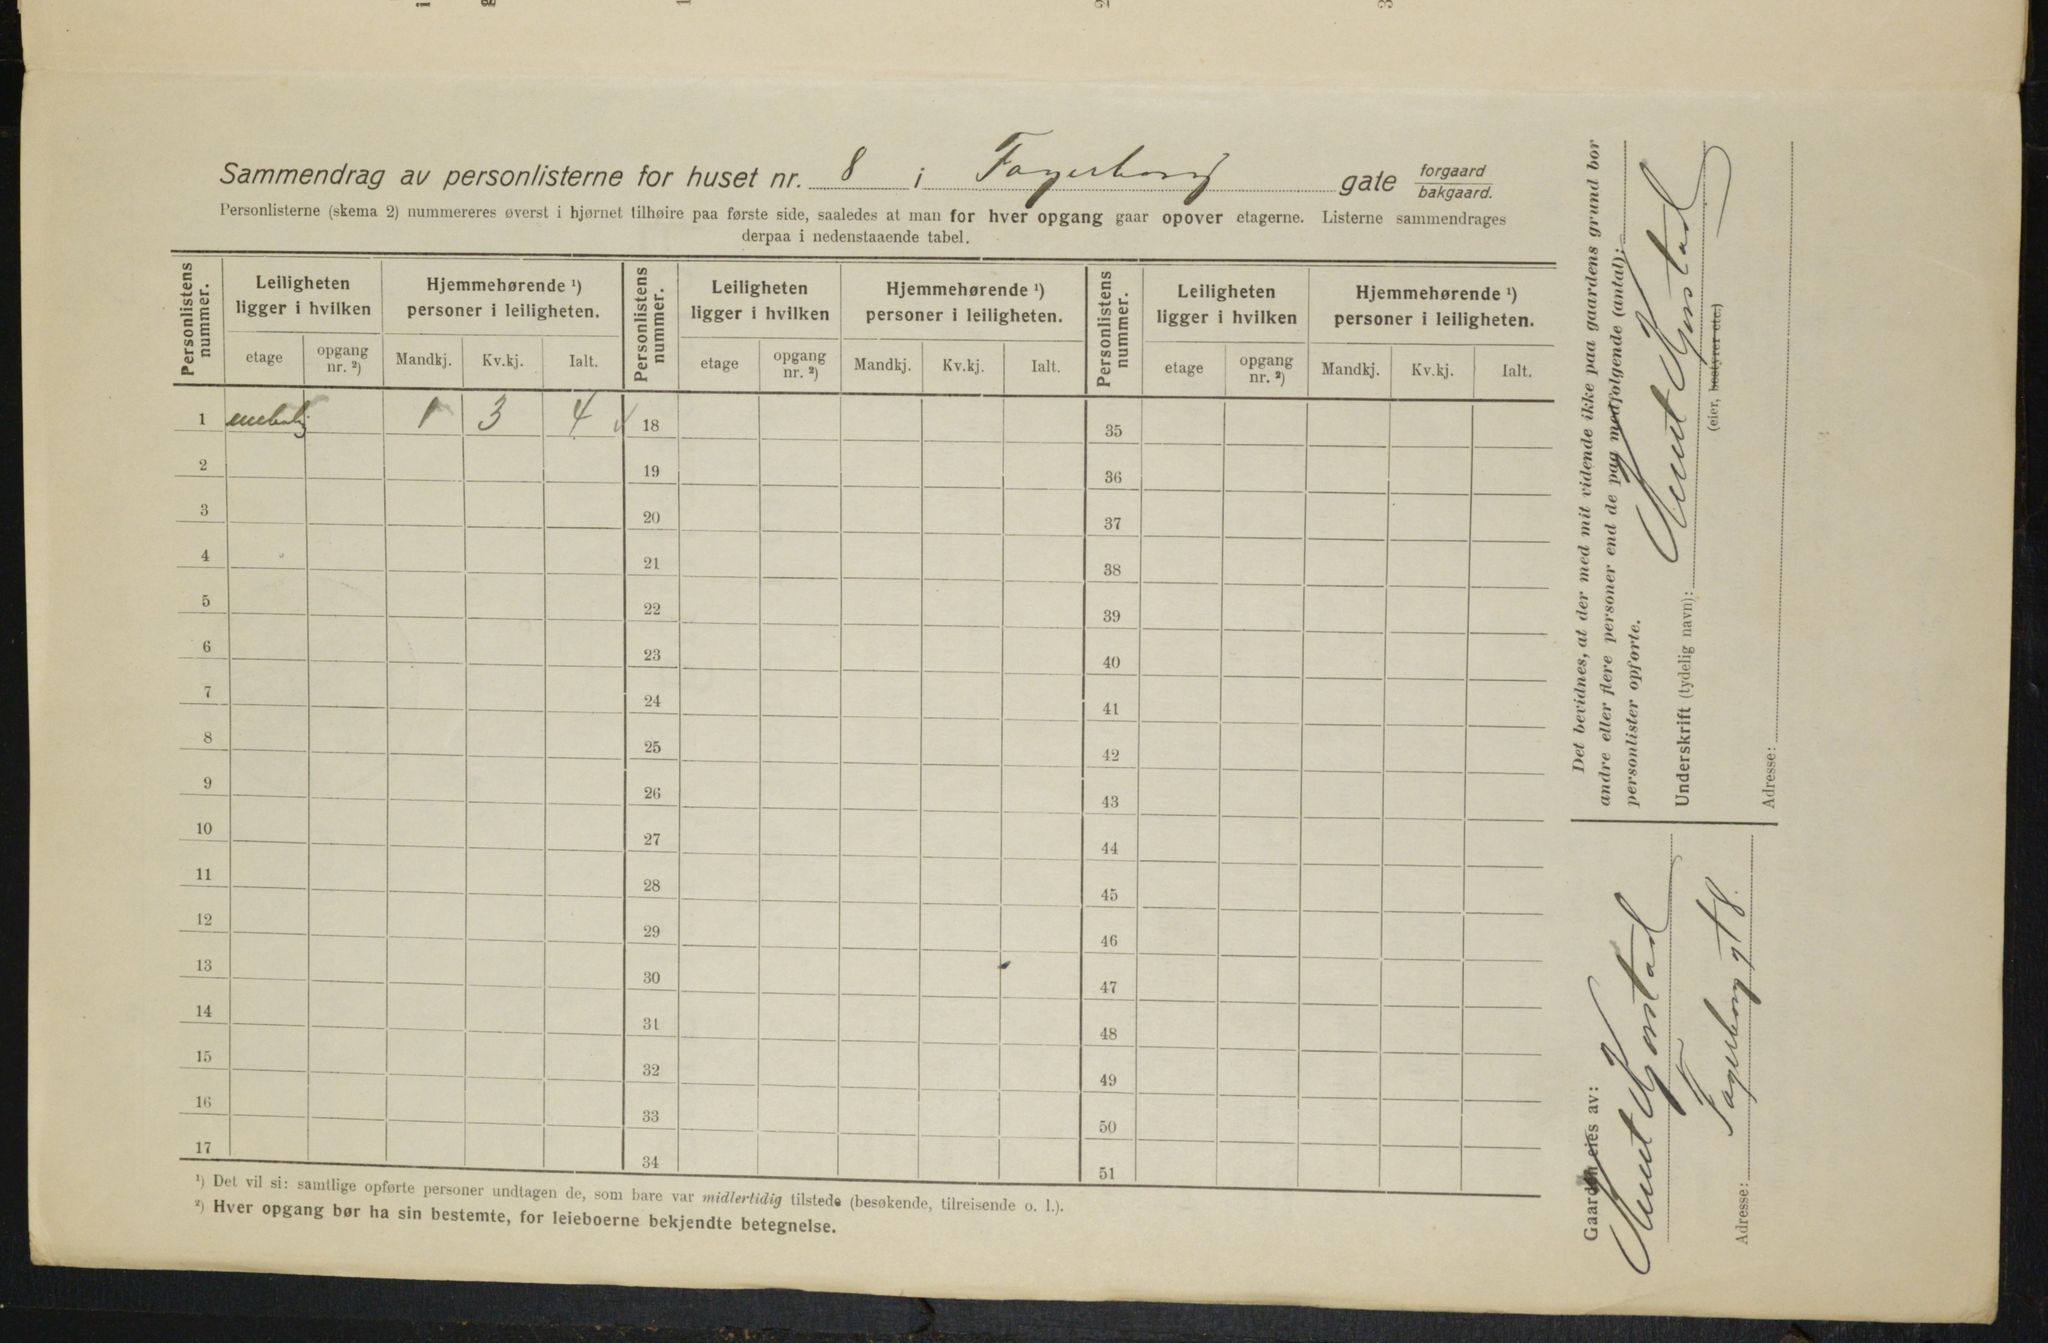 Sammendrag av personlisterne for huset nr. 8 i Fagerborg gate forgaard bakgaard.
Personlisterne (skema 2) nummereres øverst i hjørnet tilhøire paa første side, saaledes at man for hver opgang gaar opover etagerne. Listerne sammendrages
derpaa i nedenstaaende tabel.
Personlistens nummer. Leiligheten ligger i hvilken Hjemmehørende ¹) personer i leiligheten. Personlistens nummer. Leiligheten ligger i hvilken Hjemmehørende ¹) personer i leiligheten. Personlistens nummer. Leiligheten ligger i hvilken Hjemmehørende ¹) personer i leiligheten.
etage opgang nr. ²) Mandkj. Kv.kj. Ialt. etage opgang nr. ²) Mandkj. Kv.kj. Ialt. etage opgang nr. ²) Mandkj. Kv.kj. Ialt.
1 1 3 4 18 35
2 19 36
3 20 37
4 21 38
5 22 39
6 23 40
7 24 41
8 25 42
9 26 43
10 27 44
11 28 45
12 29 46
13 30 47
14 31 48
15 32 49
16 33 50
17 34 51
¹) Det vil si: samtlige opførte personer undtagen de, som bare var midlertidig tilstede (besøkende, tilreisende o. l.).
²) Hver opgang bør ha sin bestemte, for leieboerne bekjendte betegnelse.
Det bevidnes, at der med mit vidende ikke paa gaardens grund bor
andre eller flere personer end de paa medfølgende (antal):
personlister opførte.
Underskrift (tydelig navn): Knut
(eier, bestyrer etc.)
Adresse:
Gaarden eies av:
Knut
Adresse: Fagerborg gt 8.